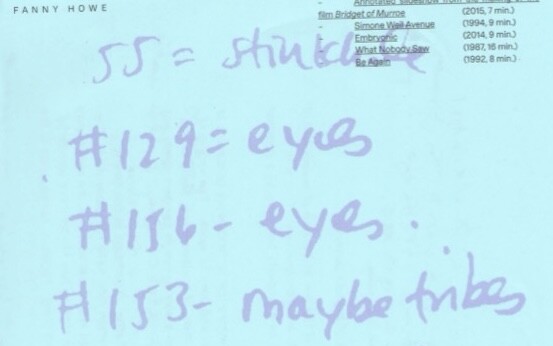 FANNY HOWE
- Annotated slideshow from the making of the
film Bridget of Murroe (2015, 7 min.)
- Simone Weil Avenue (1994, 9 min.)
- Embryonic (2014, 9 min.)
What Nobody Saw (1987, 16 min.)
Be Again (1992, 8 min.)
55 =
#129 = eyes
#156 - eyes.
#153 - maybe tribes